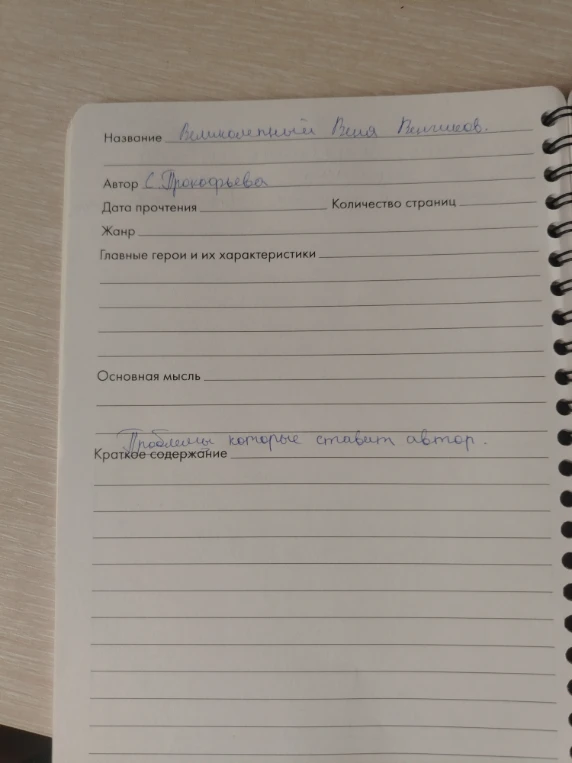 Название Великолепный Веня Венчиков.
Автор С. Прокофьева
Дата прочтения Количество страниц
Жанр
Главные герои и их характеристики
Основная мысль
Проблемы которые ставит автор.
Краткое содержание